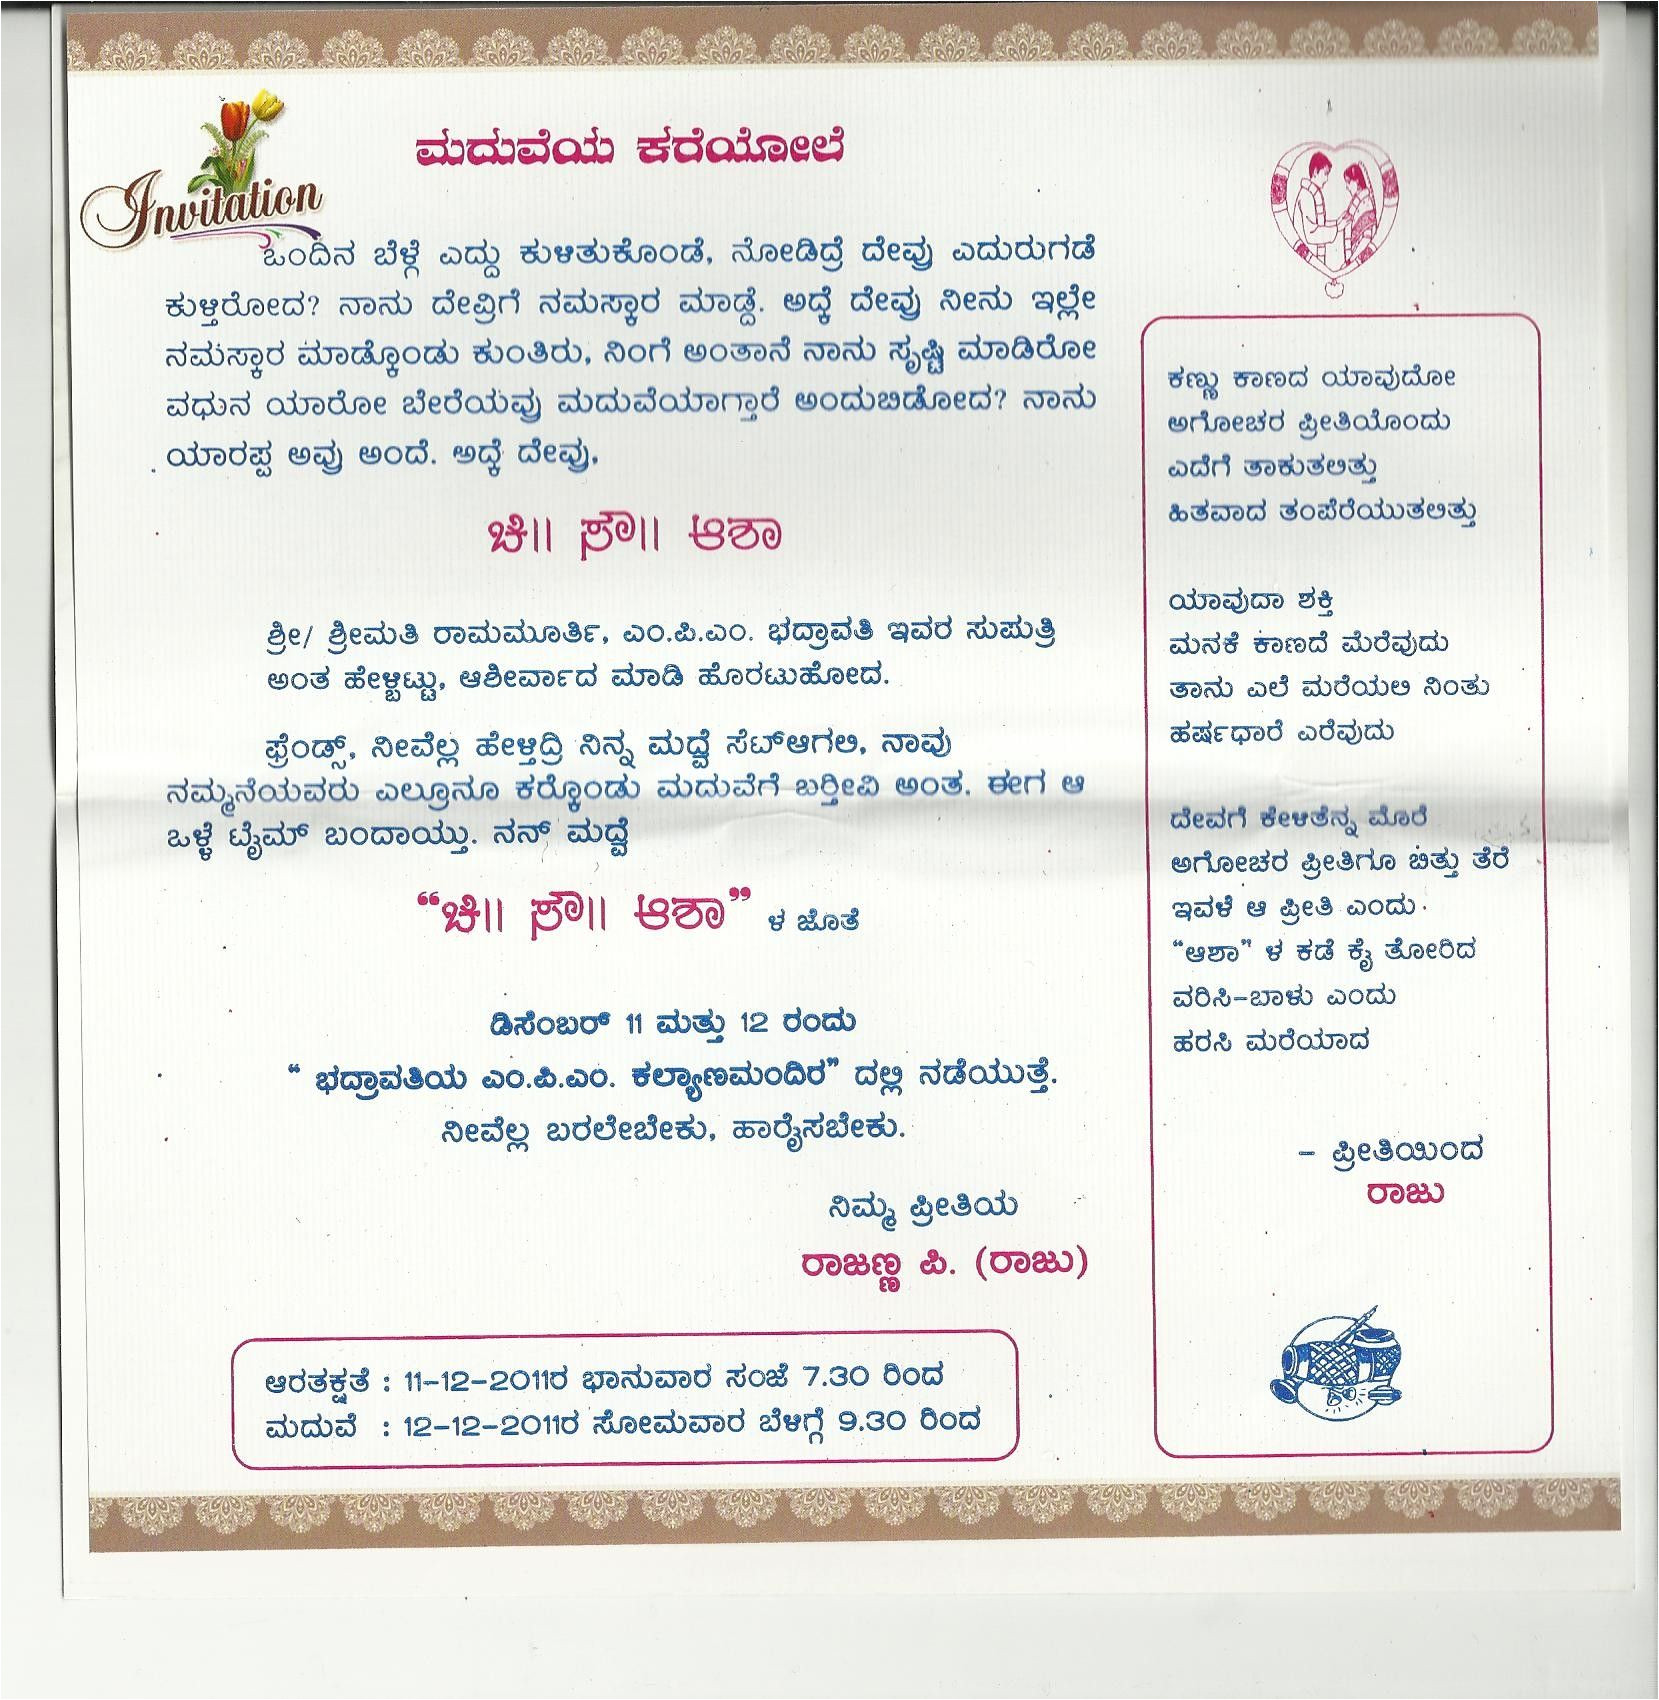 Invitation
ಮದುವೆಯ ಕರೆಯೋಲೆ
ಒಂದಿನ ಬೆಳ್ಗೆ ಎದ್ದು ಕುಳಿತುಕೊಂಡೆ, ನೋಡಿದ್ರೆ ದೇವ್ರು ಎದುರುಗಡೆ
ಕುಳ್ತಿರೋದ? ನಾನು ದೇವ್ರಿಗೆ ನಮಸ್ಕಾರ ಮಾಡ್ದೆ. ಅದ್ಕೆ ದೇವ್ರು ನೀನು ಇಲ್ಲೇ
ನಮಸ್ಕಾರ ಮಾಡ್ಕೊಂಡು ಕುಂತಿರು, ನಿಂಗೆ ಅಂತಾನೆ ನಾನು ಸೃಷ್ಟಿ ಮಾಡಿರೋ
ವಧುನ ಯಾರೋ ಬೇರೆಯವ್ರು ಮದುವೆಯಾಗ್ತಾರೆ ಅಂದುಬಿಡೋದ? ನಾನು
ಯಾರಪ್ಪ ಅವ್ರು ಅಂದೆ. ಅದ್ಕೆ ದೇವ್ರು,
ಚಿ|| ಸೌ|| ಆಶಾ
ಶ್ರೀ/ ಶ್ರೀಮತಿ ರಾಮಮೂರ್ತಿ, ಎಂ.ಪಿ.ಎಂ. ಭದ್ರಾವತಿ ಇವರ ಸುಪುತ್ರಿ
ಅಂತ ಹೇಳ್ಬಿಟ್ಟು, ಆಶೀರ್ವಾದ ಮಾಡಿ ಹೊರಟುಹೋದ.
ಫ್ರೆಂಡ್ಸ್, ನೀವೆಲ್ಲ ಹೇಳ್ತಿದ್ರಿ ನಿನ್ನ ಮದ್ವೆ ಸೆಟ್‌ಆಗಲಿ, ನಾವು
ನಮ್ಮನೆಯವರು ಎಲ್ರೂನೂ ಕರ್‍ಕೊಂಡು ಮದುವೆಗೆ ಬರ್ತೀವಿ ಅಂತ. ಈಗ ಆ
ಒಳ್ಳೆ ಟೈಮ್ ಬಂದಾಯ್ತು. ನನ್ ಮದ್ವೆ
“ಚಿ|| ಸೌ|| ಆಶಾ” ಳ ಜೊತೆ
ಡಿಸೆಂಬರ್ 11 ಮತ್ತು 12 ರಂದು
“ ಭದ್ರಾವತಿಯ ಎಂ.ಪಿ.ಎಂ. ಕಲ್ಯಾಣಮಂದಿರ” ದಲ್ಲಿ ನಡೆಯುತ್ತೆ.
ನೀವೆಲ್ಲ ಬರಲೇಬೇಕು, ಹಾರೈಸಬೇಕು.
ನಿಮ್ಮ ಪ್ರೀತಿಯ
ರಾಜಣ್ಣ ಪಿ. (ರಾಜು)
ಆರತಕ್ಷತೆ : 11-12-2011ರ ಭಾನುವಾರ ಸಂಜೆ 7.30 ರಿಂದ
ಮದುವೆ : 12-12-2011ರ ಸೋಮವಾರ ಬೆಳಿಗ್ಗೆ 9.30 ರಿಂದ
ಕಣ್ಣು ಕಾಣದ ಯಾವುದೋ
ಅಗೋಚರ ಪ್ರೀತಿಯೊಂದು
ಎದೆಗೆ ತಾಕುತಲಿತ್ತು
ಹಿತವಾದ ತಂಪೆರೆಯುತಲಿತ್ತು
ಯಾವುದಾ ಶಕ್ತಿ
ಮನಕೆ ಕಾಣದೆ ಮೆರೆವುದು
ತಾನು ಎಲೆ ಮರೆಯಲಿ ನಿಂತು
ಹರ್ಷಧಾರೆ ಎರೆವುದು
ದೇವಗೆ ಕೇಳಿತೆನ್ನ ಮೊರೆ
ಅಗೋಚರ ಪ್ರೀತಿಗೂ ಬಿತ್ತು ತೆರೆ
ಇವಳೆ ಆ ಪ್ರೀತಿ ಎಂದು
“ಆಶಾ” ಳ ಕಡೆ ಕೈ ತೋರಿದ
ವರಿಸಿ-ಬಾಳು ಎಂದು
ಹರಸಿ ಮರೆಯಾದ
- ಪ್ರೀತಿಯಿಂದ
ರಾಜು